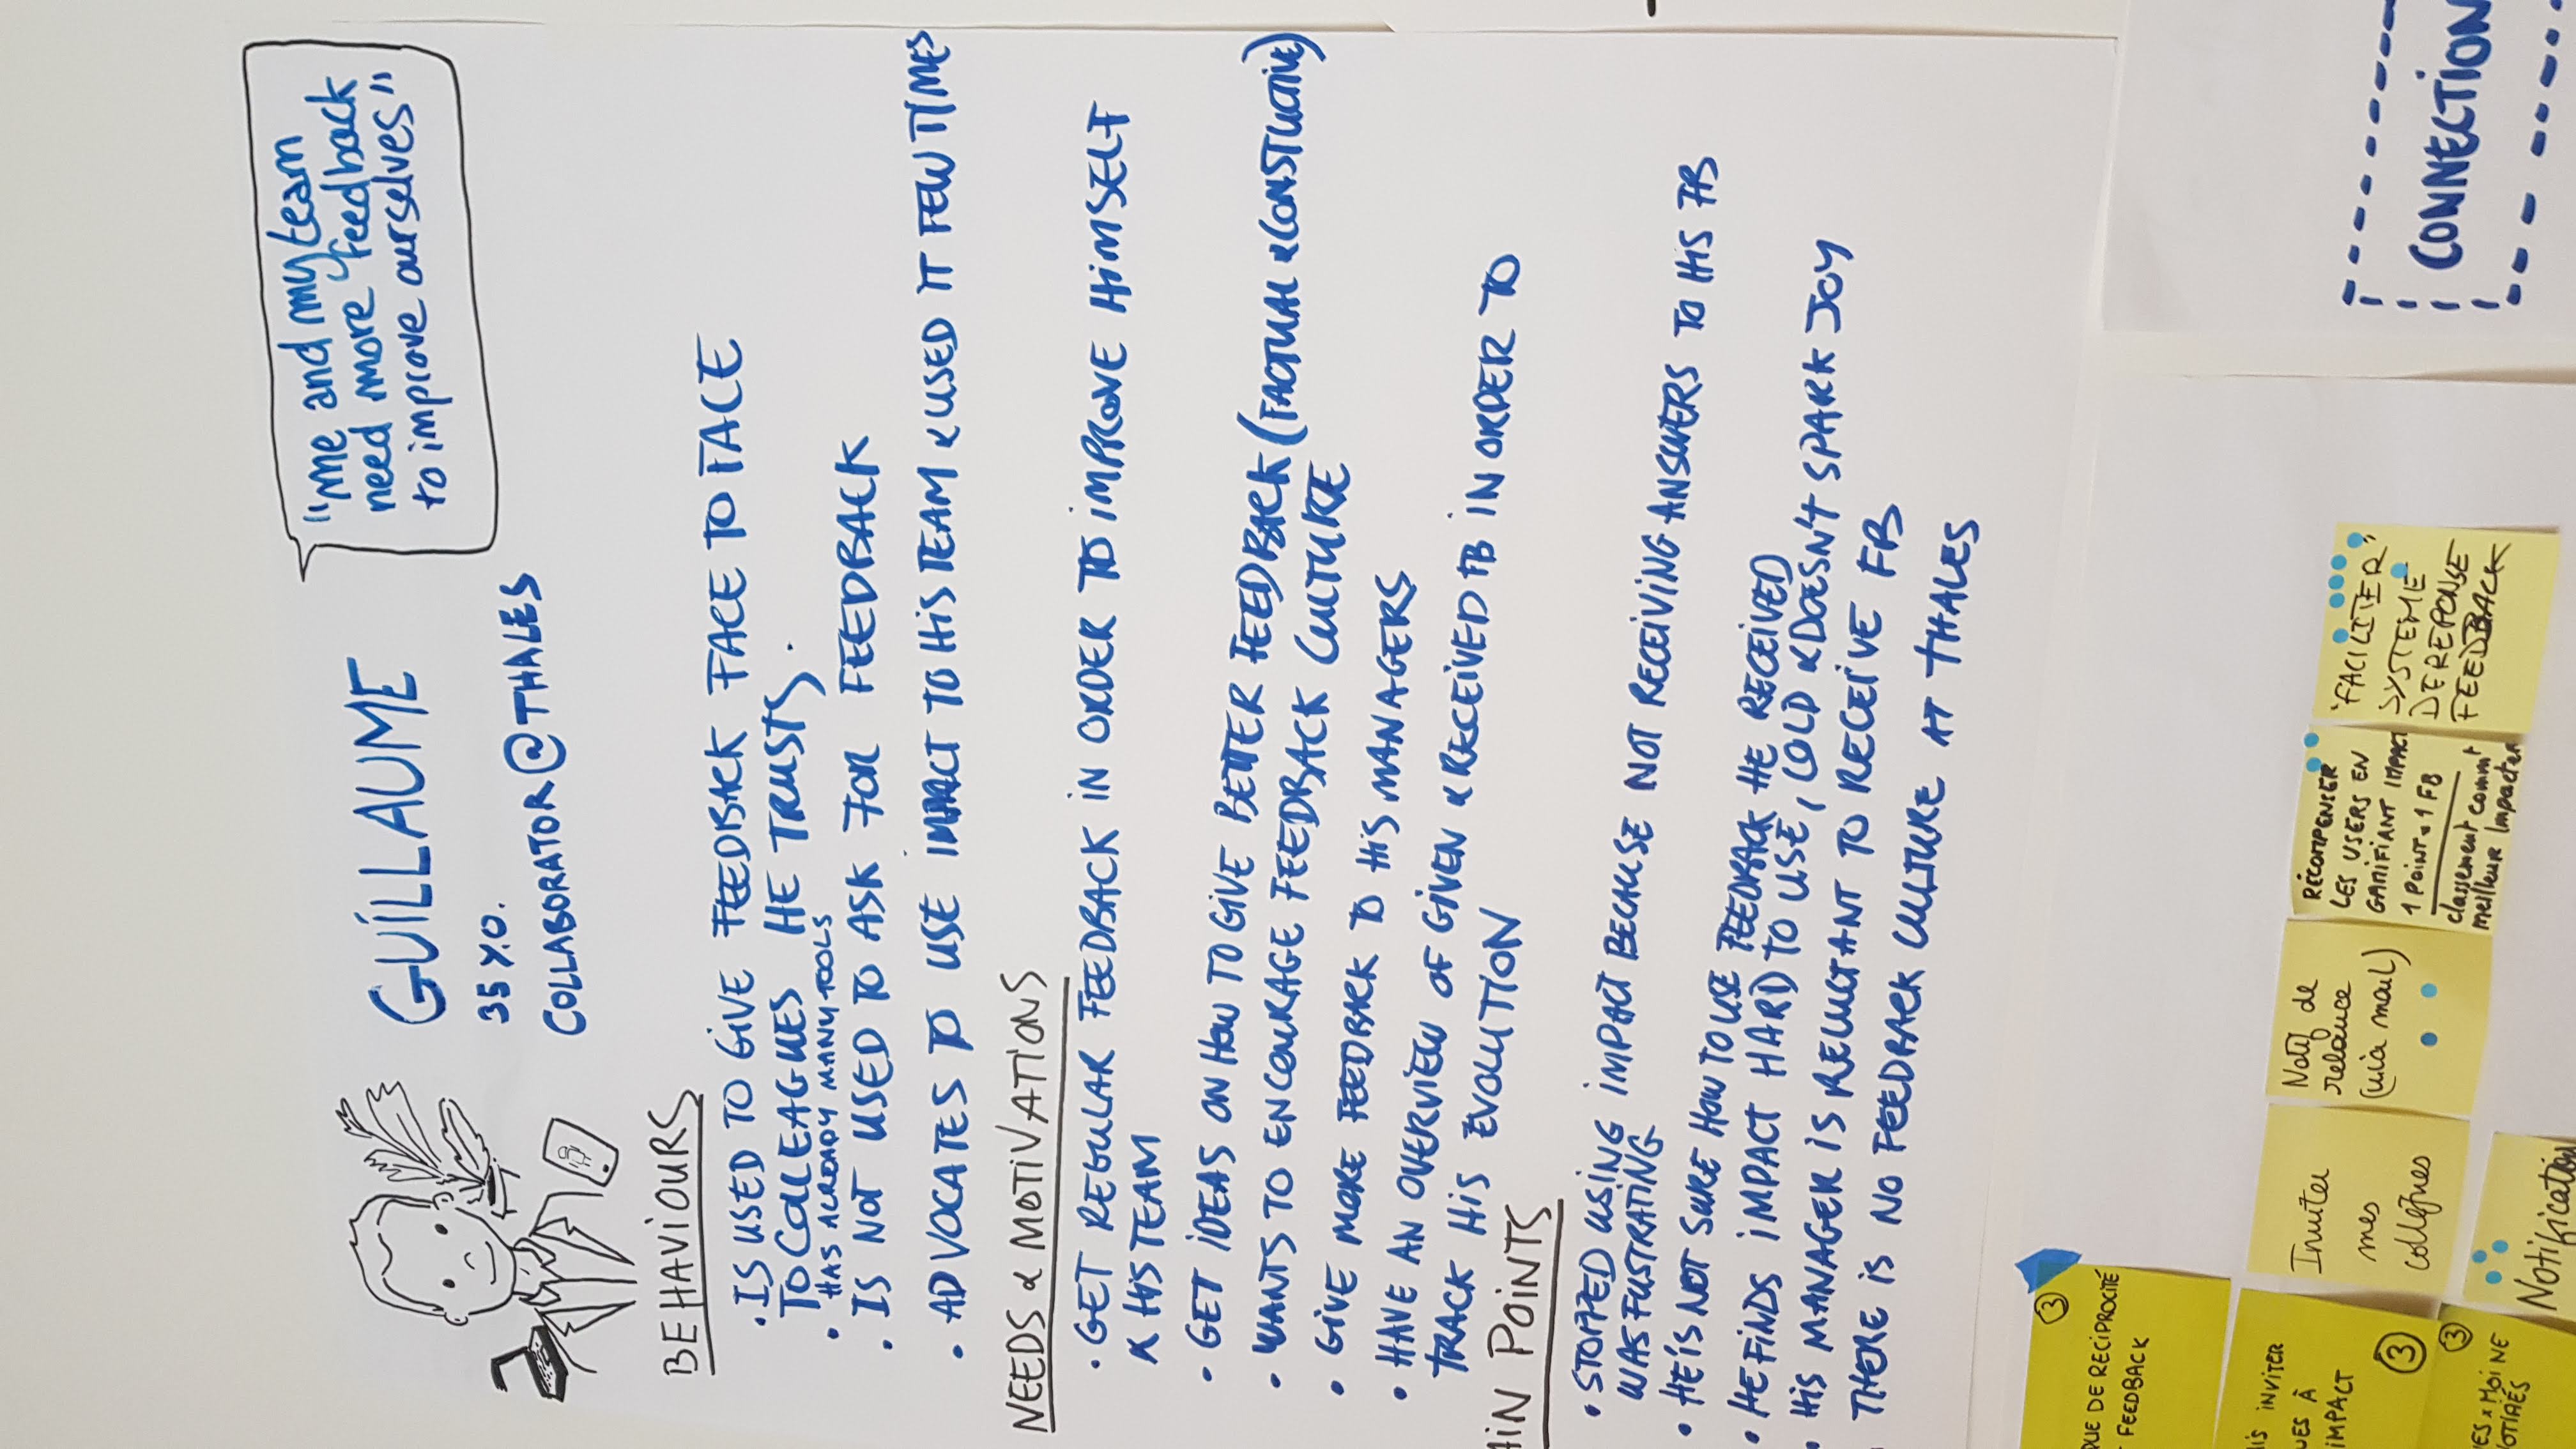 "me and my team
need more feedback
to improve ourselves"
GUILLAUME
35 Y.O.
COLLABORATOR @ THALES
BEHAVIOURS
• IS USED TO GIVE FEEDBACK FACE TO FACE
TO COLLEAGUES HE TRUSTS.
• HAS ALREADY MANY TOOLS
• IS NOT USED TO ASK FOR FEEDBACK
• ADVOCATES TO USE IMPACT TO HIS TEAM & USED IT FEW TIMES
NEEDS & MOTIVATIONS
• GET REGULAR FEEDBACK IN ORDER TO IMPROVE HIMSELF
& HIS TEAM
• GET IDEAS ON HOW TO GIVE BETTER FEEDBACK (FACTUAL & CONSTUCTIVE)
• WANTS TO ENCOURAGE FEEDBACK CULTURE
• GIVE MORE FEEDBACK TO HIS MANAGERS
• HAVE AN OVERVIEW OF GIVEN & RECEIVED FB IN ORDER TO
TRACK HIS EVOLUTION
AIN POINTS
• STOPPED USING IMPACT BECAUSE NOT RECEIVING ANSWERS TO HIS FB
WAS FUSTRATING
• HE IS NOT SURE HOW TO USE FEEDBACK HE RECEIVED
• HE FINDS IMPACT HARD TO USE, COLD & DOESN'T SPARK JOY
• HIS MANAGER IS RELUCTANT TO RECEIVE FB
THERE IS NO FEEDBACK CULTURE AT THALES
CONNECTION
FACILITER
SYSTEME
DE REPONSE
FEEDBACK
RÉCOMPENSER
LES USERS EN
GAMIFIANT IMPACT
1 POINT = 1 FB
classement comme
meilleur impacter
Notif de
relance
(via mail)
Inviter
mes
collègues
Notification
3
QUE DE RECIPROCITÉ
FEEDBACK
IS INVITER
UES À
IMPACT
3
3
ES x MOI NE